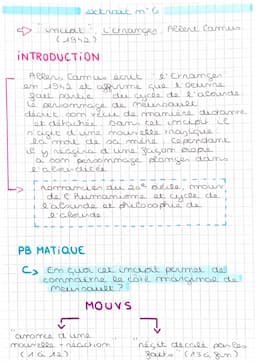 extrait n° 6
"incipit", L'étranger, Albert Camus
(1942)
INTRODUCTION
Albert Camus écrit l'étranger
en 1942 et affirme que l'oeuvre
fait partie du cycle de l'absurde
Le personnage de Meursault
décrit son récit de manière distante
et détachée. Dans cet incipit il
s'agit d'une nouvelle tragique :
la mort de sa mère. Cependant
il y réagira d'une façon propre
à son personnage plongé dans
l'absurdité
romancier du 20e siècle, mouv
de l'humanisme et cycle de
l'absurde et philosophie de
l'absurde
PB MATIQUE
En quoi cet incipit permet de
connaître le côté marginal de
Meursault ?
MOUVS
"annonce d'une
nouvelle + réaction
(1 à 12)
"récit décalé par les
faits" (13 à fin)